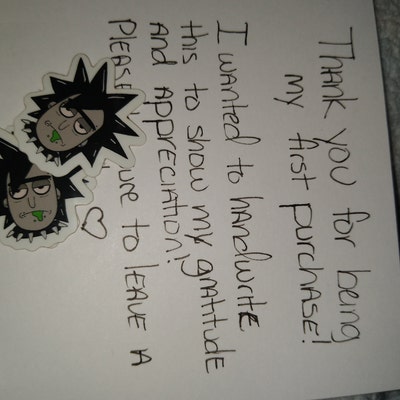 Thank you for being
my first purchase!
I wanted to handwrite
this to show my gratitude
And Appreciation!
PLEASE ure to leave A